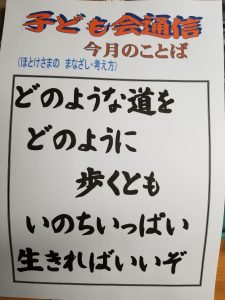 子ども会通信
今月のことば
(ほとけさまの まなざし・考え方)
どのような道を
どのように
歩くとも
いのちいっぱい
生きればいいぞ